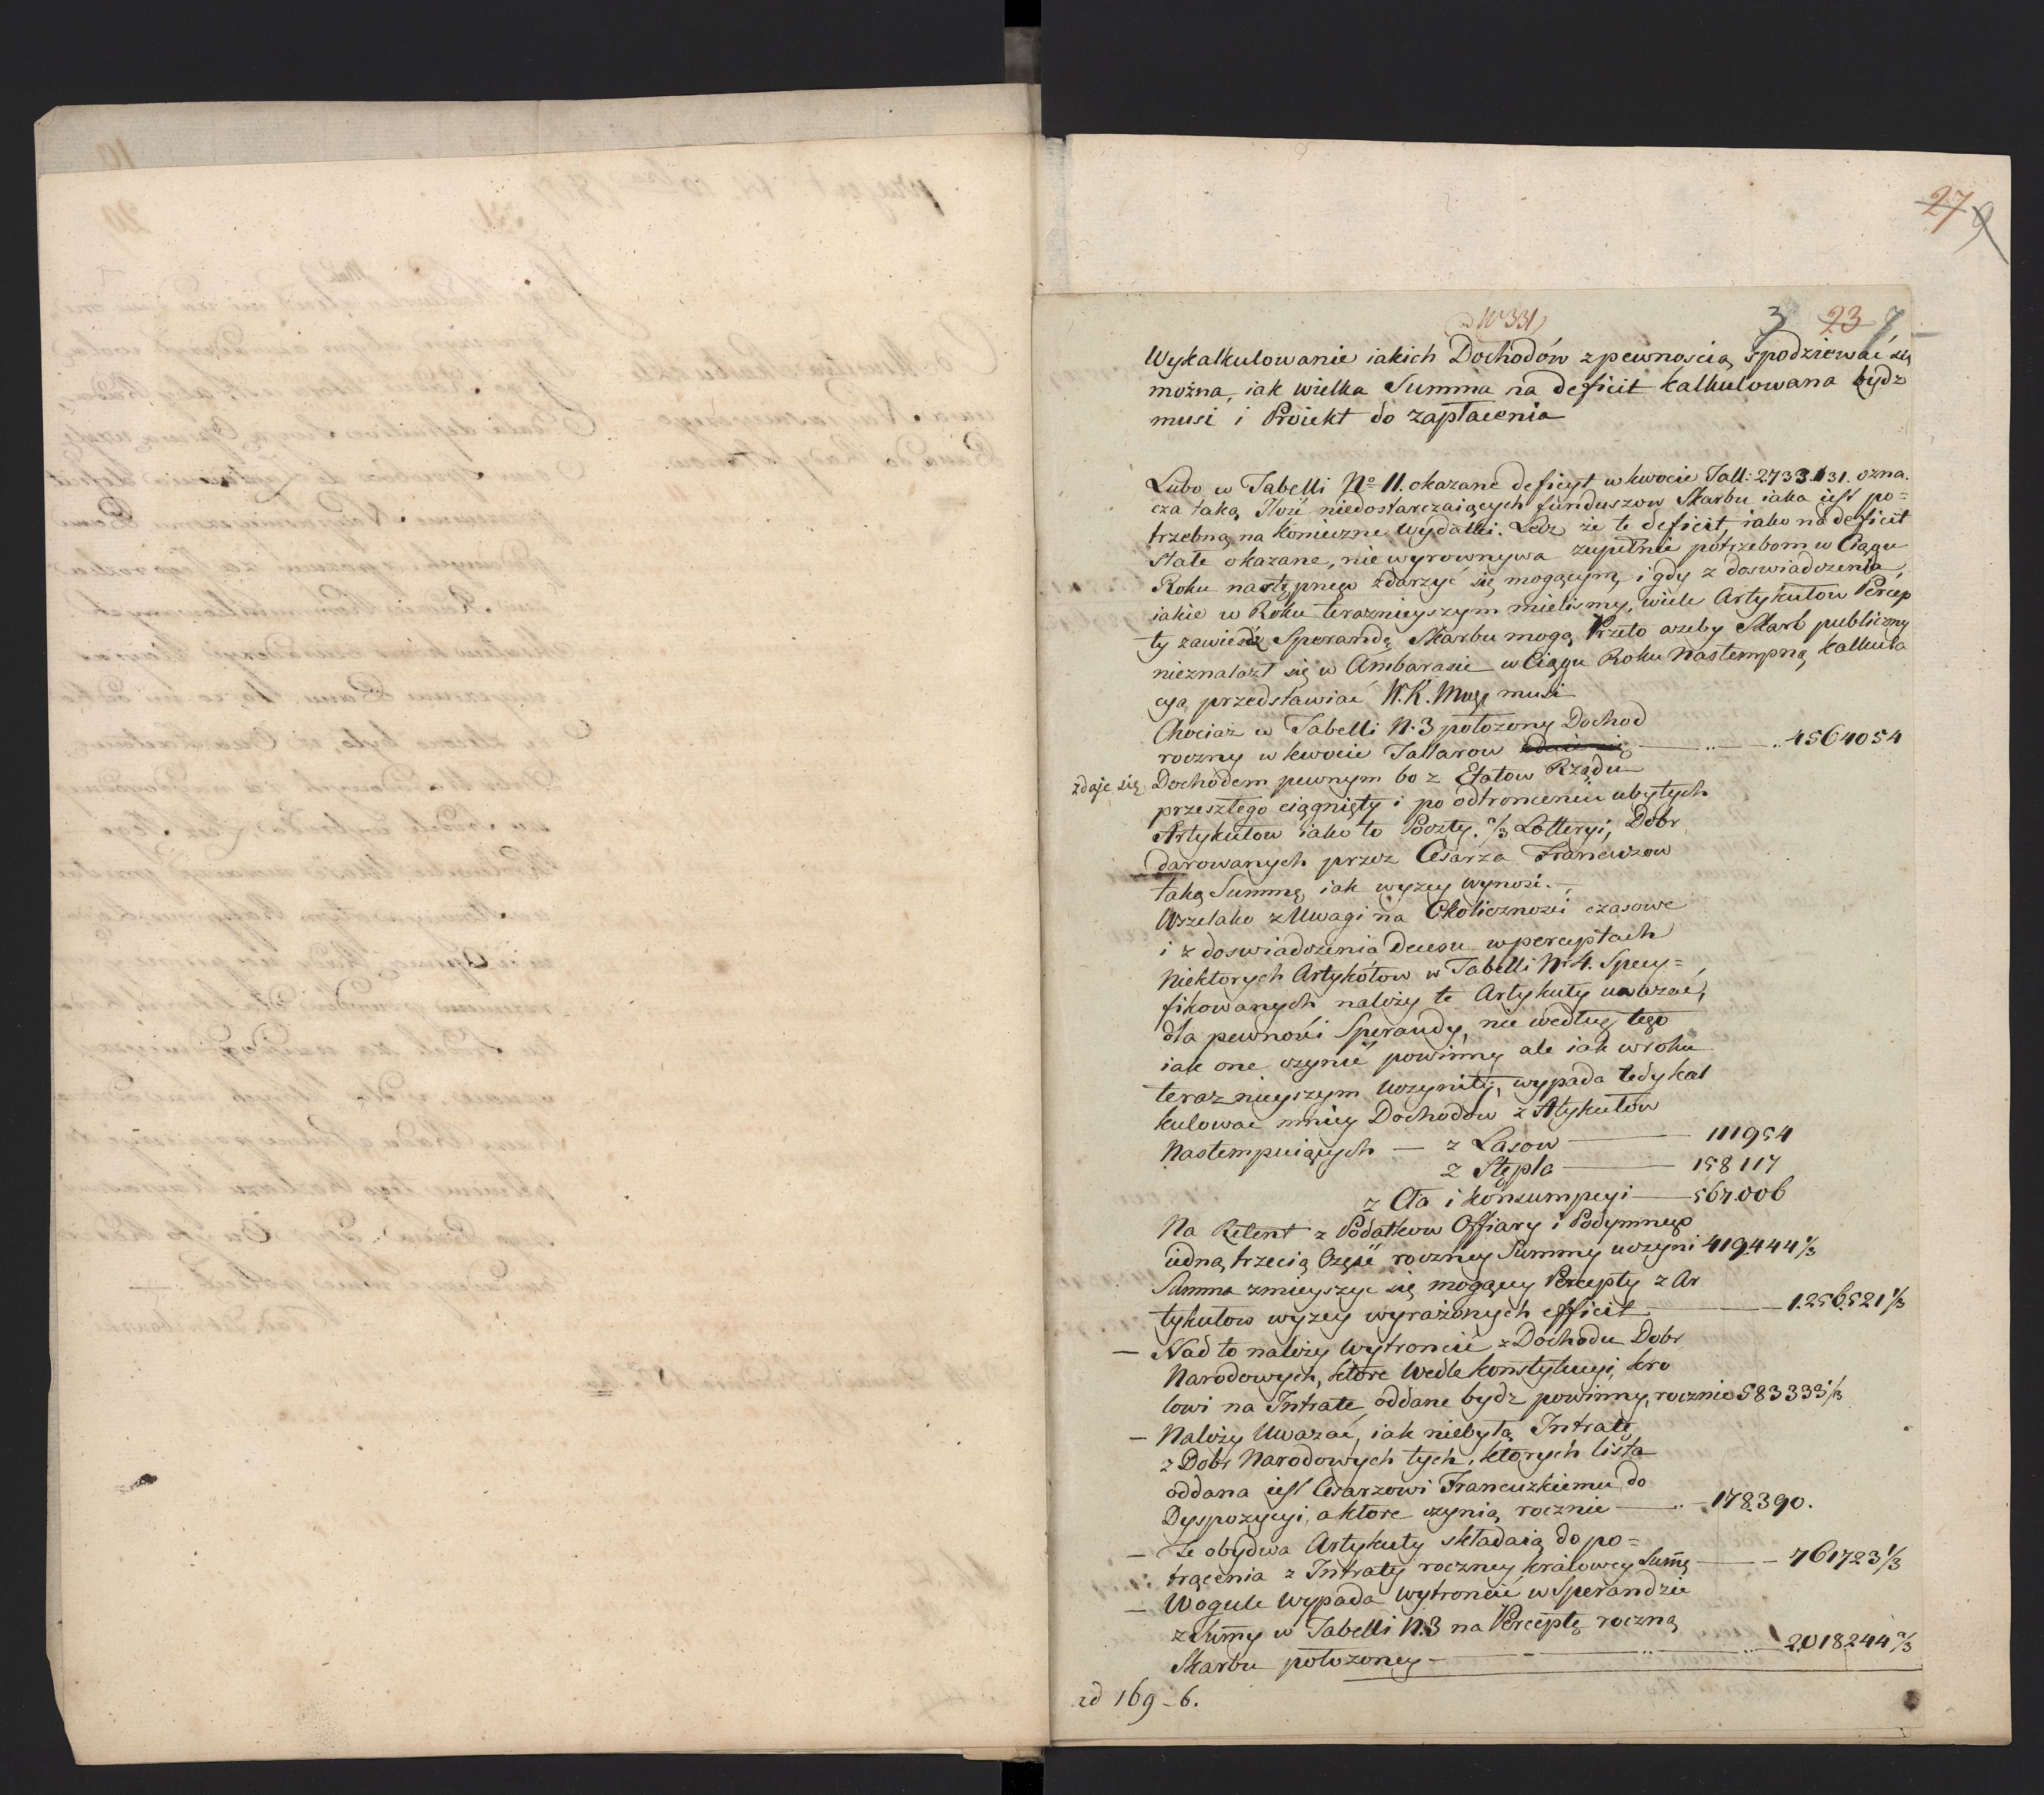 27 9
ad N 331
3 23 7
Wykalkulowanie iakich Dochodów z pewnoscią spodziewać się
można, iak wielka Summa na deficit kalkulowana bydz
musi i Proiekt do zapłacenia
Lubo w Tabelli No 11. okazane deficyt w kwocie Tall: 2733.131. ozna.
cza taką Ilość niedostarczaiących funduszow Skarbu iaka iest po=
trzebną na konieczne Wydatki. Lecz że te deficit, iako na deficit
stałe okazane, nie wyrownywa zupełnie potrzebom w Ciągu
Roku następnego zdarzyć się mogącym, i gdy z doswiadczenia,
iakie w Roku terazniejszym mielismy, wiele Artykułow Percep
ty zawieść Sperandę Skarbu mogą Przeto azeby Skarb publiczny
nieznalazł się w Ambarasie w Ciągu Roku Nastempną kalkula
cyą przedstawiać W. K. Mcy musi
Chociaż w Tabelli N: 3 położony Dochod
roczny w kwocie Tallarow 4564054
zdaje się Dochodem pewnym bo z Etatow Rządu
przeszłego ciągnięty i po odtronceniu ubyłych
Artykułow iako to Poczty. 2/3 Lotteryi, Dobr
darowanych przez Cesarza Francuzow
taką Summę iak wyzey wynosi.
Wszelako z Uwagi na Okolicznosci czasowe
i z doswiadczenia Decesu w perceptach
Niektorych Artykółow w Tabelli Nr 4. Specy=
fikowanych należy te Artykuły uwazać,
dla pewności Sperandy, nie według tego
iak one czynić powinny ale iak w roku
terazniejszym uczyniły, wypada tedy kal
kulować mniey Dochodow z Atykułow
Nastempuiących — z Lasow 111954
z Stępla 158117
z Cła i konsumpcyi 567.006
Na Retent z Podatkow Offiary i Podymnego
iedną trzecią Część roczney Summy uczyni 419444 1/3
Summa zmieyszyc się mogącey Percepty z Ar
tykułow wyzey wyrażonych efficit 1.256.521 1/3
— Nad to należy Wytroncić z Dochodu Dobr
Narodowych, które Wedle konstytucyi, kro
lowi na Intratę oddane bydz powinny, rocznie 583333 1/3
— Należy Uwazać, iak niebyłą Intratę
z Dobr Narodowych tych, których lista
oddana iest Cesarzowi Francuzkiemu do
Dyspozycyi, a ktore czynią rocznie 178.390.
— Te obydwa Artykuły składaią do po=
trącenia z Intraty roczney kraiowey Summę 761723 1/3
— Wogule Wypada wytroncić w Sperandzie
z Summy w Tabelli N. 3 na Perceptę roczną
Skarbu położoney 2.018.244 2/3
ad 169-6.